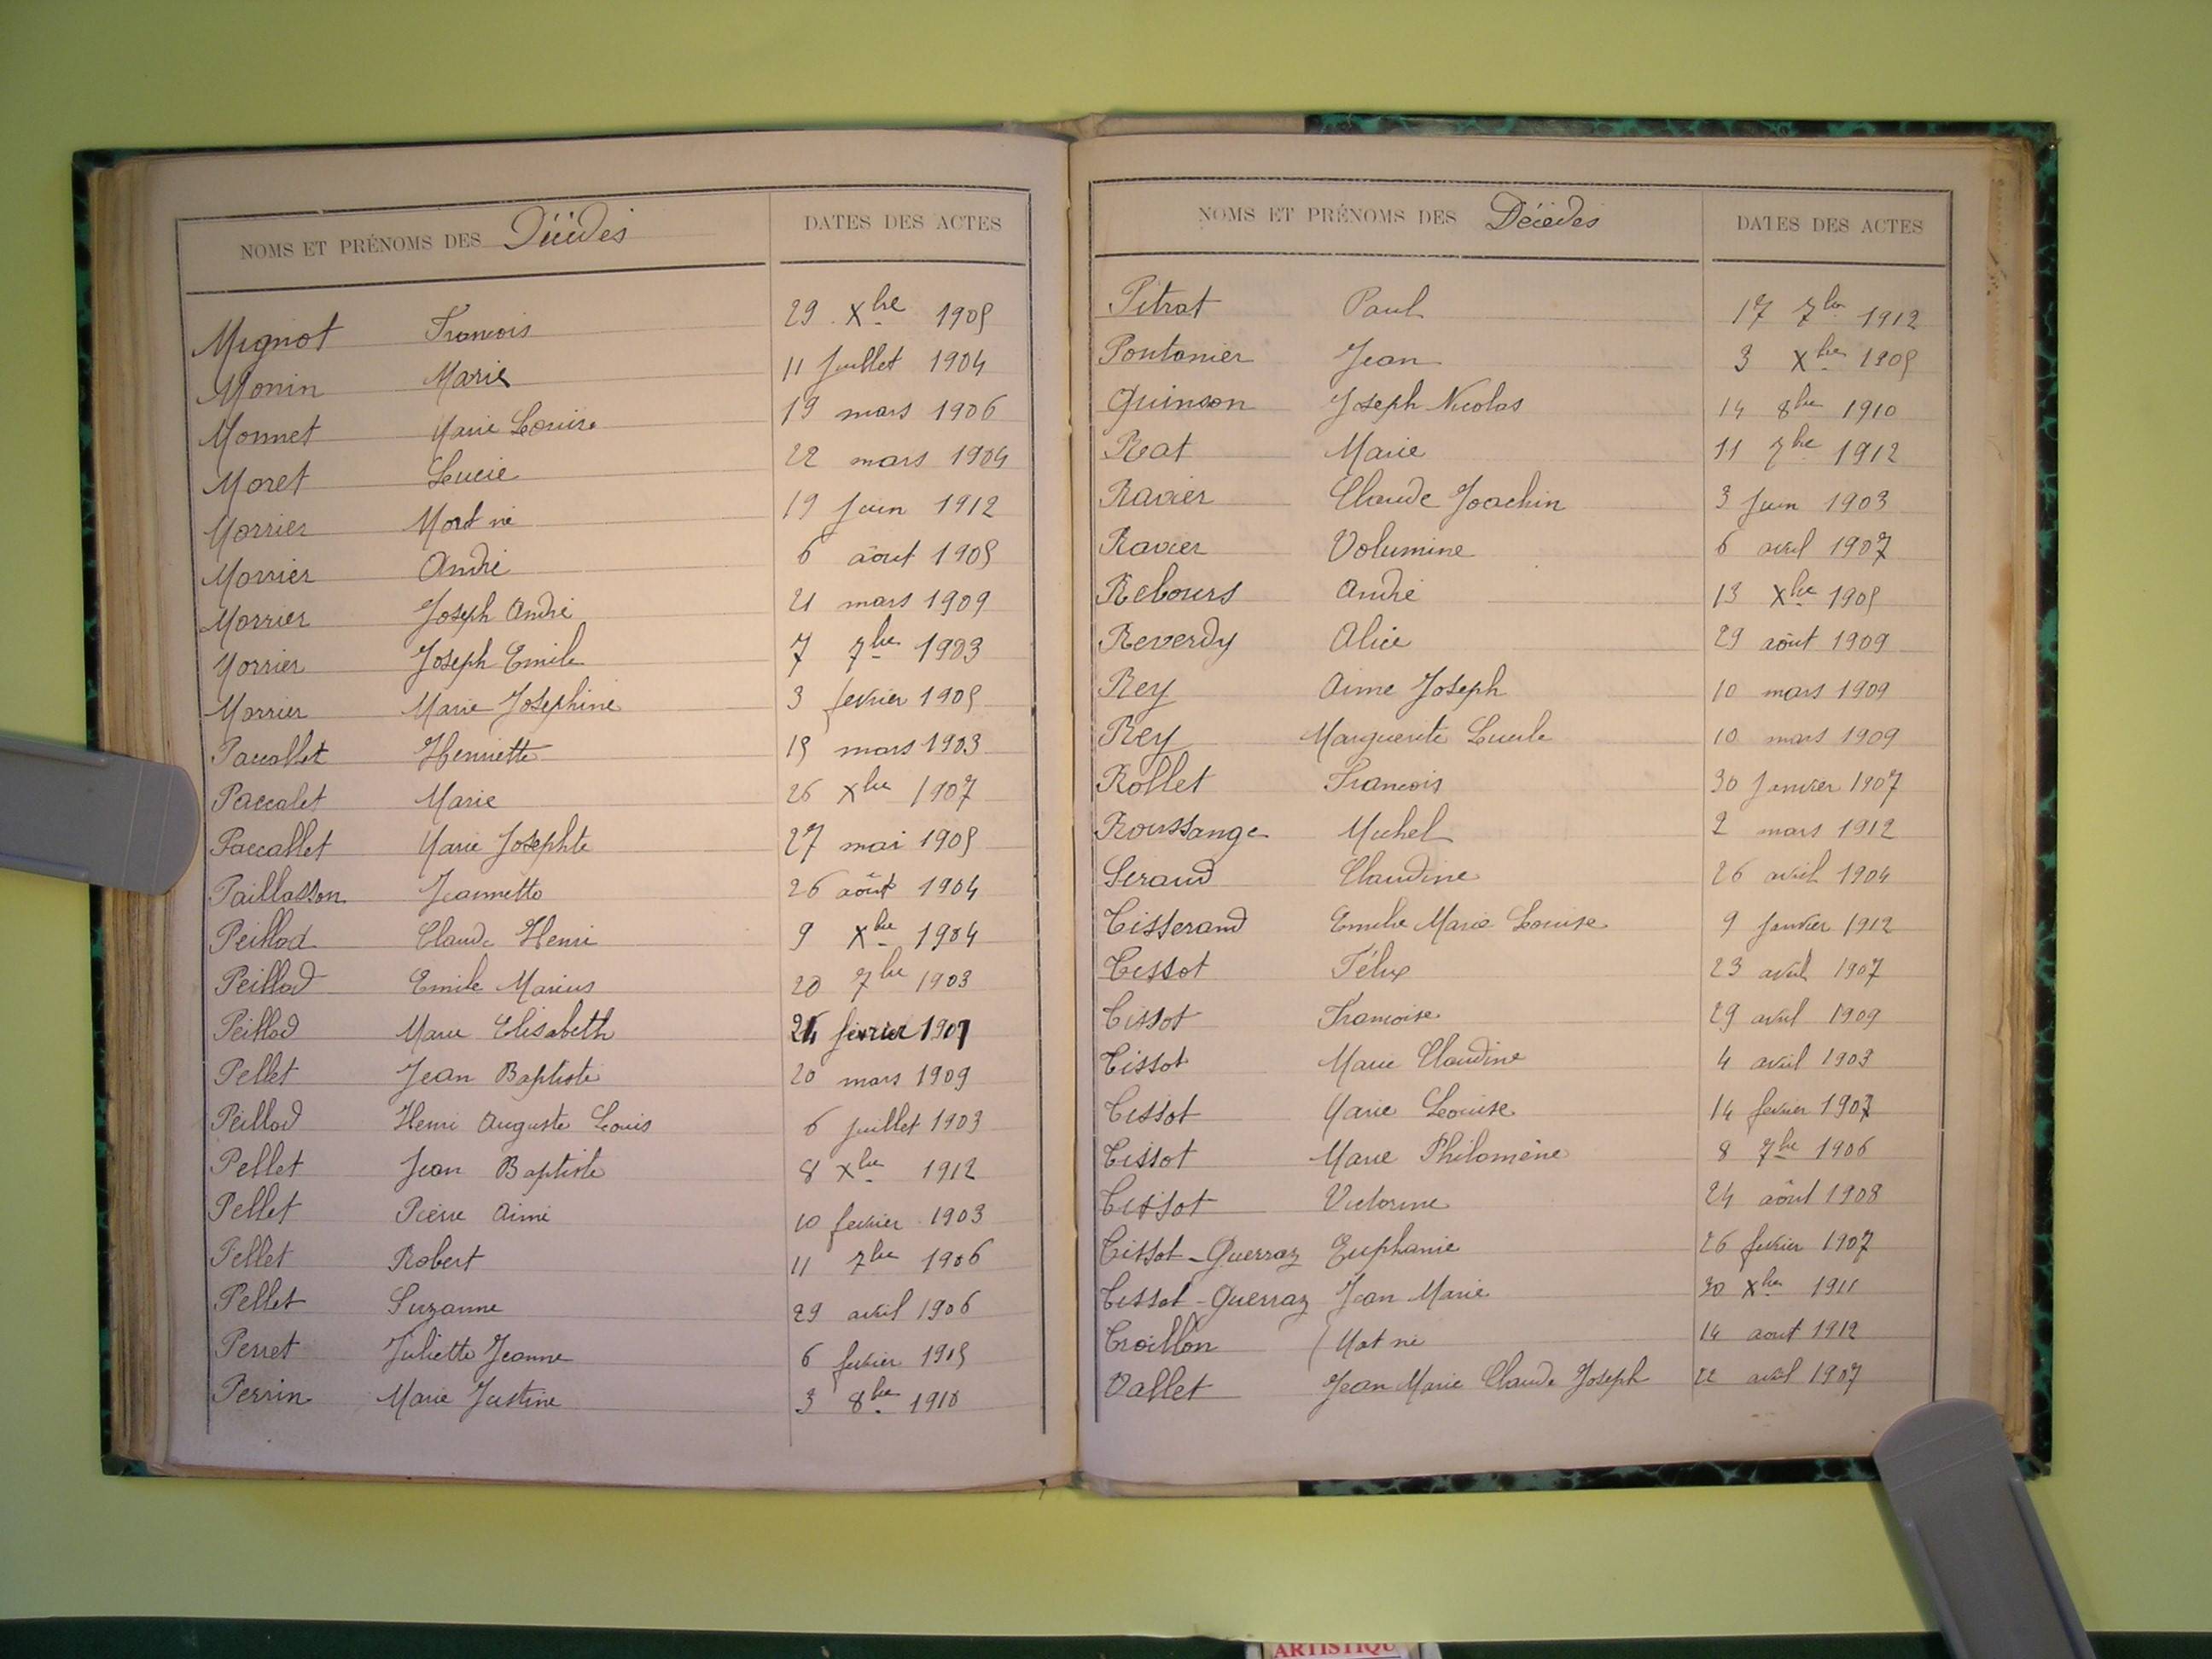 NOMS ET PRÉNOMS DES Décédés DATES DES ACTES
Mignot Francois 29 Xbre 1905
Monin Marie 11 Juillet 1904
Monnet Marie Louise 19 mars 1906
Moret Lucie 22 mars 1904
Morrier Mort né 19 Juin 1912
Morrier André 6 août 1905
Morrier Joseph André 21 mars 1909
Morrier Joseph Emile 7 7bre 1903
Morrier Marie Josephine 3 fevrier 1905
Paccallet Henriette 15 mars 1903
Paccalet Marie 26 Xbre 1907
Paccallet Marie Josephte 27 mai 1905
Paillasson Jeannette 26 août 1904
Peillod Claude Henri 9 Xbre 1904
Peillod Emile Marius 20 7bre 1903
Peillod Marie Elisabeth février
Pellet Jean Baptiste 20 mars 1909
Peillod Henri Auguste Louis 6 Juillet 1903
Pellet Jean Baptiste 8 Xbre 1912
Pellet Pierre Aimé 10 fevrier 1903
Pellet Robert 11 7bre 1906
Pellet Suzanne 29 avril 1906
Perret Juliette Jeanne 6 fevrier
Perrin Marie Justine 3 8bre 1910
NOMS ET PRÉNOMS DES Décédés DATES DES ACTES
Pitrat Paul 17 7bre 1912
Pontanier Jean 3 Xbre 1905
Quinson Joseph Nicolas 14 8bre 1910
Rat Marie 11 7bre 1912
Ravier Claude Joachin 3 Juin 1903
Ravier Volumine 6 avril 1907
Rebours André 13 Xbre 1905
Reverdy Alice 29 août 1909
Rey Aime Joseph 10 mars 1909
Rey Marguerite Lucile 10 mars 1909
Rollet Francois 30 Janvier 1907
Roussange Michel 2 mars 1912
Seraud Claudine 26 avril 1904
Tisserand Emilie Marie Louise 9 Janvier 1912
Tissot Félix 23 avril 1907
Tissot Francoise 29 avril 1909
Tissot Marie Claudine 4 avril 1903
Tissot Marie Louise 14 fevrier 1907
Tissot Marie Philomène 8 7bre 1906
Tissot Victorine 24 août 1908
Tissot-Guerraz Euphanie 26 fevrier 1907
Tissot-Guerraz Jean Marie 30 Xbre 1911
Troillon Mort né 14 aout 1912
Vallet Jean Marie Claude Joseph 22 avril 1907
ARTISTIQU